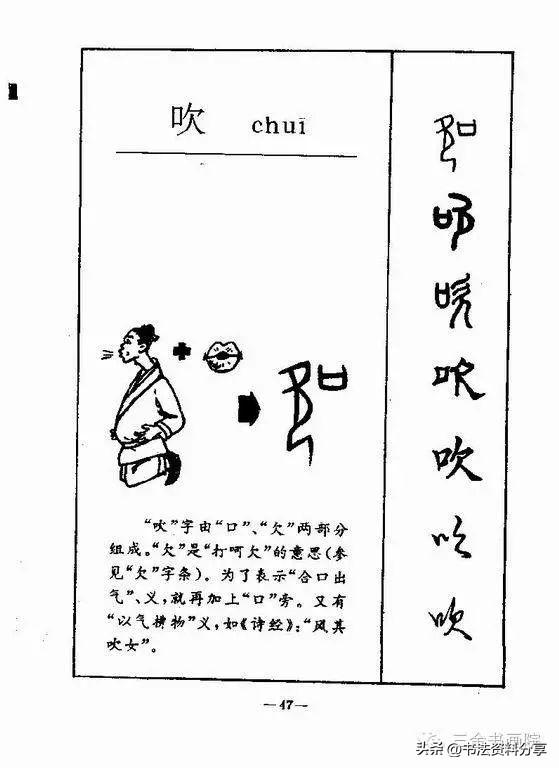 吹 chuī
“吹”字由“口”、“欠”两部分
组成。“欠”是“打呵欠”的意思(参
见“欠”字条)。为了表示“合口出
气”、义,就再加上“口”旁。又有
“以气拂物”义,如《诗经》:“风其
吹女”。
吹
吹
吹
—47—
三余书画院
头条 @书法资料分享